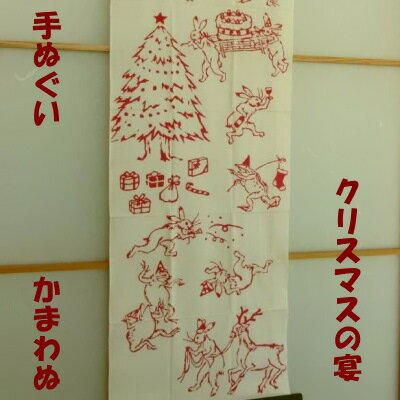 手ぬぐい
クリスマスの宴
かまわぬ